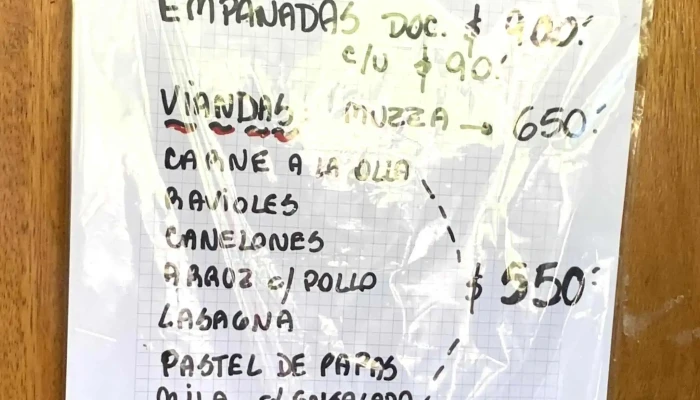 EMPANADAS DOC. $ 900.-
c/u $ 90.-
VIANDAS: MUZZA → 650.-
CARNE A LA OLLA
RAVIOLES
CANELONES
ARROZ c/ POLLO $ 550.-
LASAGNA
PASTEL DE PAPAS
MILA c/ ENSALADA